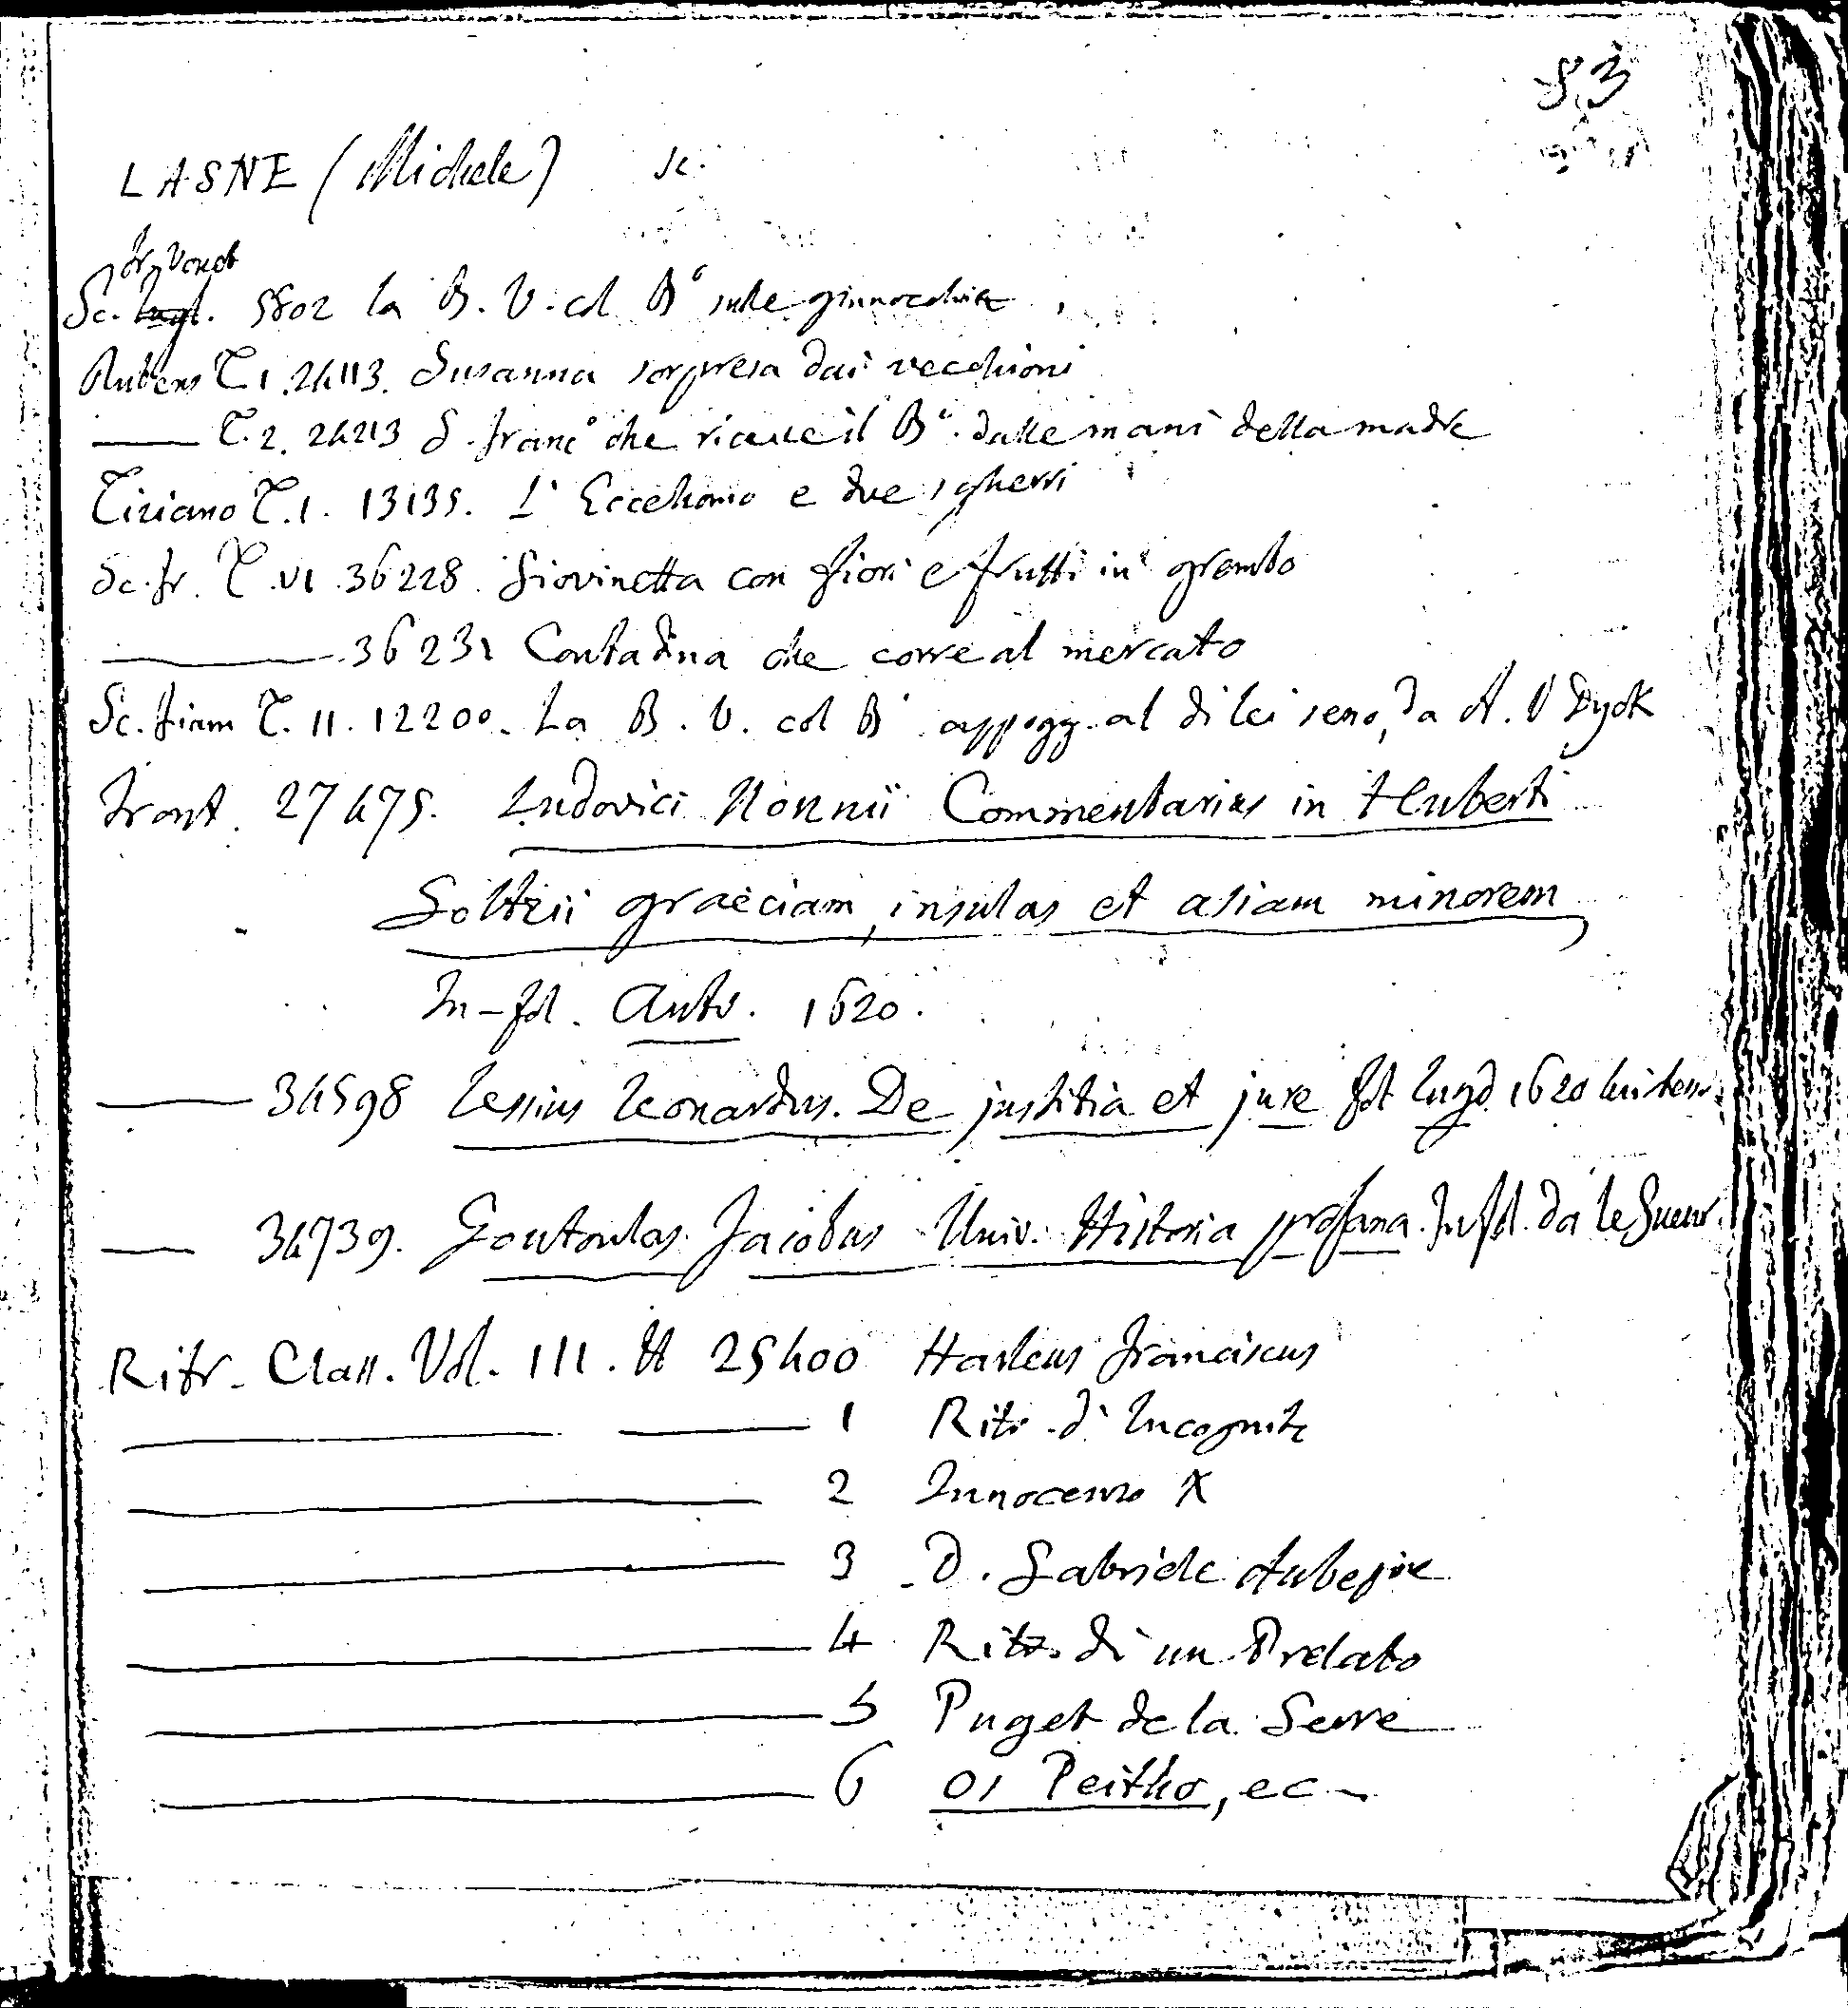 83
LASNE (Michele) sc.
fr. Vouet
Sc. 5802 la B. V. col B° sulle ginnocchia
Rubens T. 1. 24113. Susanna sorpresa dai vecchioni
—— T. 2. 24213 S. Franc° che riceve il B°. dalle mani della madre
Tiziano T. 1. 13135. L' Eccehomo e due sgherri
Sc. fr. T. VI. 36228. Giovinetta con fiori e frutti in grembo
—— 36231 Contadina che corre al mercato
Sc. fiam T. 11. 12200. La B. V. col B° appogg. al di lei seno, da A. V Dyck
Front. 27475. Ludovici Nonnii Commentarius in Huberti
Goltzii graeciam, insulas et asiam minorem
In-fol. Antv. 1620.
—— 34598 Lessius Leonardus. De justitia et jure fol Lugd. 1620
—— 34739. Goutoulas Jacobus Univ. Historia profana. In fol. da le Sueur.
Ritr. Class. Vol. III. N 25400 Harleus Franciscus
—— —— 1 Ritr. d' Incognito
—— 2 Innocenzo X
—— 3 D. Gabriele Aubespine
—— 4 Ritr. di un Prelato
—— 5 Puget de la Serre
—— 6 01 Peitho, ec.